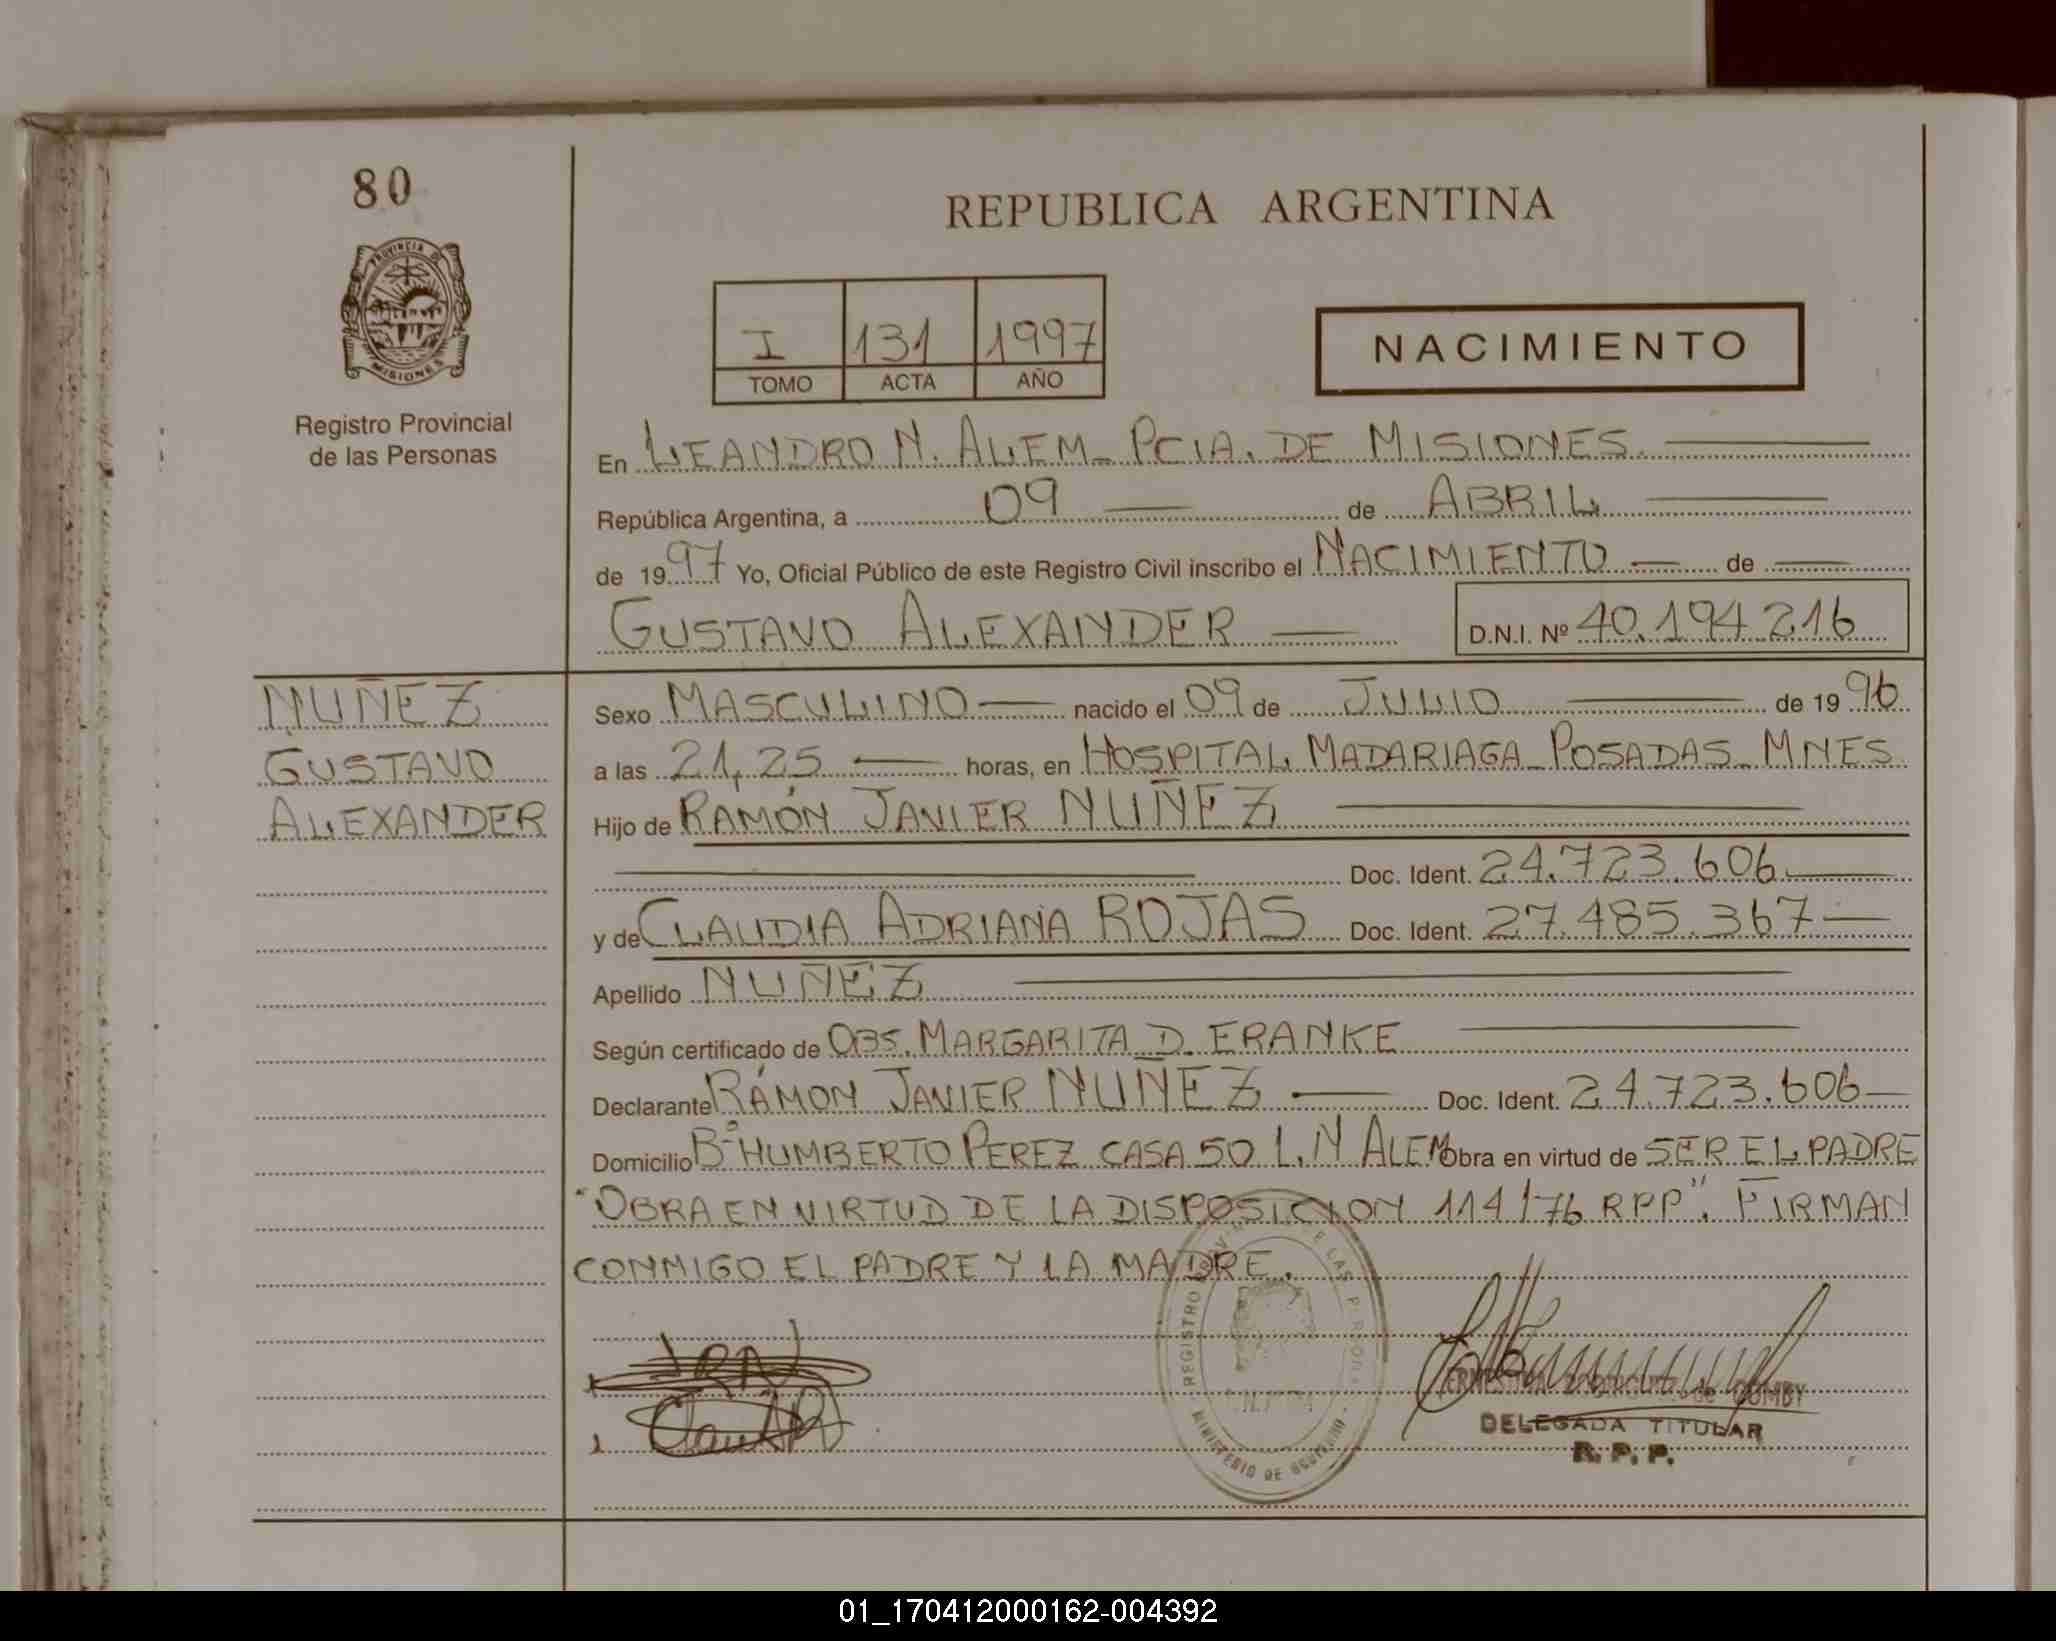 80
REPUBLICA ARGENTINA
PROVINCIA DE
MISIONES
Registro Provincial
de las Personas
I 131 1997
TOMO ACTA AÑO
NACIMIENTO
En LEANDRO N. ALEM - PCIA. DE MISIONES.
República Argentina, a 09 de ABRIL
de 1997 Yo, Oficial Público de este Registro Civil inscribo el NACIMIENTO de
GUSTAVO ALEXANDER D.N.I. Nº 40.194.216
NUÑEZ
GUSTAVO
ALEXANDER
Sexo MASCULINO nacido el 09 de JULIO de 1996
a las 21,25 horas, en HOSPITAL MADARIAGA - POSADAS - MNES.
Hijo de RAMÓN JAVIER NUÑEZ
Doc. Ident. 24.723.606
y de CLAUDIA ADRIANA ROJAS Doc. Ident. 27.485.367
Apellido NUÑEZ
Según certificado de OBS. MARGARITA D. FRANKE
Declarante RAMÓN JAVIER NUÑEZ Doc. Ident. 24.723.606
Domicilio Bº HUMBERTO PEREZ CASA 50 L. N ALEM Obra en virtud de SER EL PADRE
"OBRA EN VIRTUD DE LA DISPOSICION 114/76 RPP". FIRMAN
CONMIGO EL PADRE Y LA MADRE.
REGISTRO DE LAS
MINISTERIO DE GOBIERNO
DELEGADA TITULAR
R. P. P.
01_170412000162-004392